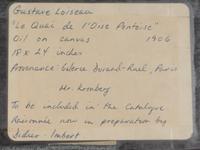 Gustave Loiseau
"Le Quai de l'Oise Pontoise"
Oil on canvas 1906
18 x 24 inches
Provenance: Galerie Durand-Ruel, Paris
Mr. Kromberg
To be included in the Catalogue
Raisonné now in preparation by
Didier-Imbert